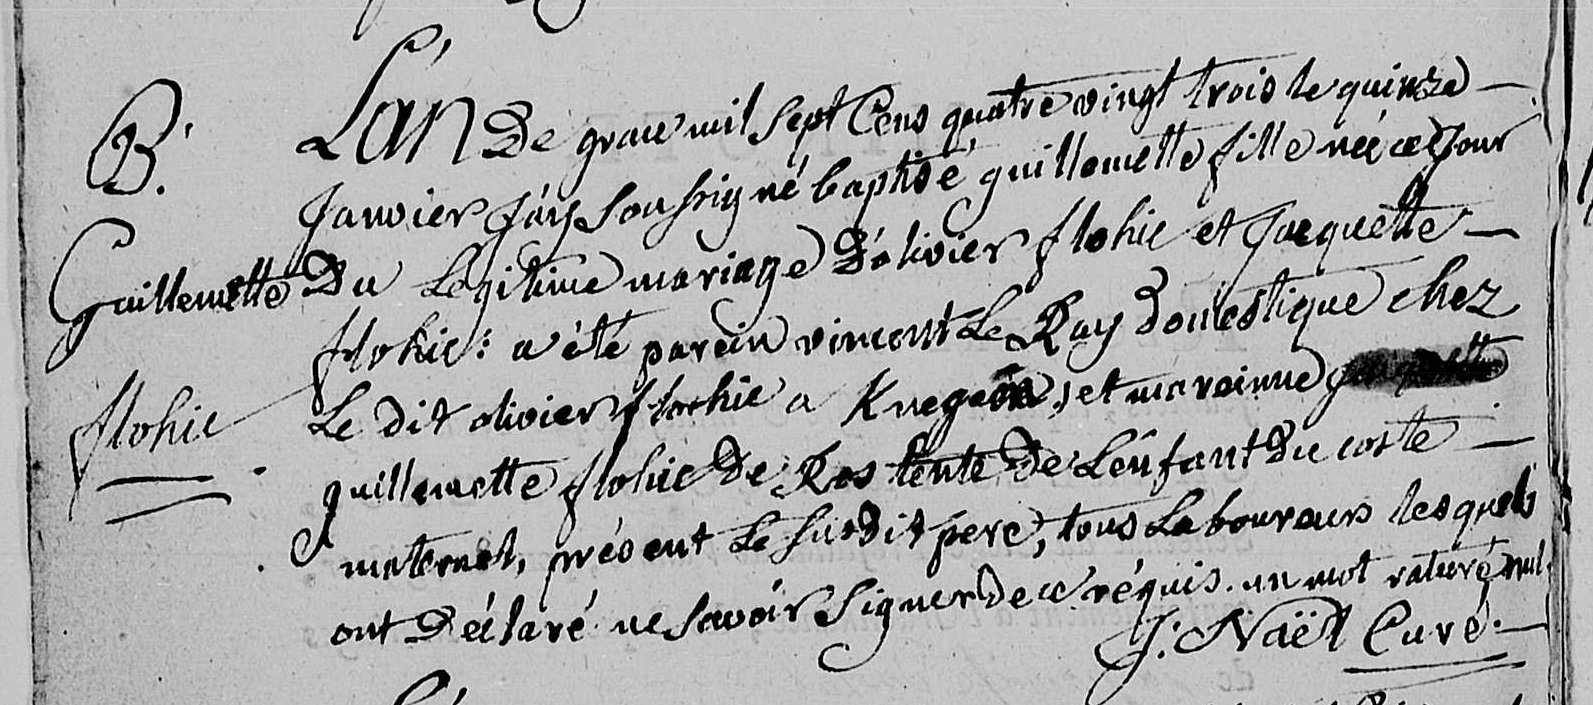 B.
Guillemette
flohic
L'an De grace mil Sept Cens quatre vingt trois le quinze
Janvier J'ay Soussigné baptisé guillemette fille née ce Jour
Du Légitime mariage D'olivier flohic et Jacquette
flohic: a été parein vincent Le Ray domestique chez
Le dit olivier flohic a et maroinne
guillemette flohic De Ros tente De L'enfant Du coste
maternel, présent Le Susdit pere, tous Laboureurs lesquels
ont Déclaré ne Savoir Signer de ce réquis. un mot raturé nul.
J. Naël Curé.